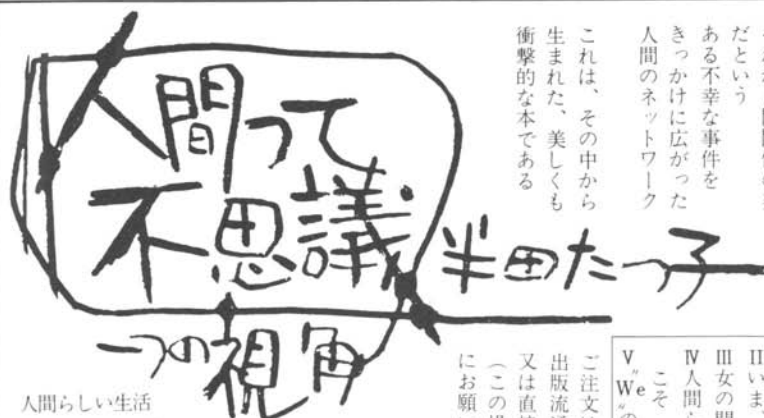 だという
ある不幸な事件を
きっかけに広がった
人間のネットワーク
これは、その中から
生まれた、美しくも
衝撃的な本である
人間って
不思議
半田たつ子
一つの視角
IIいま
III女の
IV人間
こそ
V"We"の
ご注文
出版流
又は直接
(この
にお願
人間らしい生活